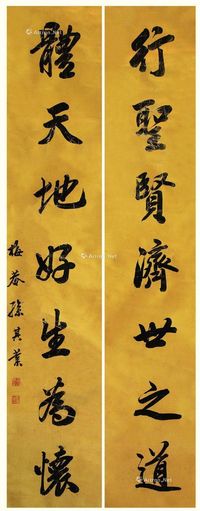 行聖賢濟世之道
體天地好生為懷
梅菴孫其業